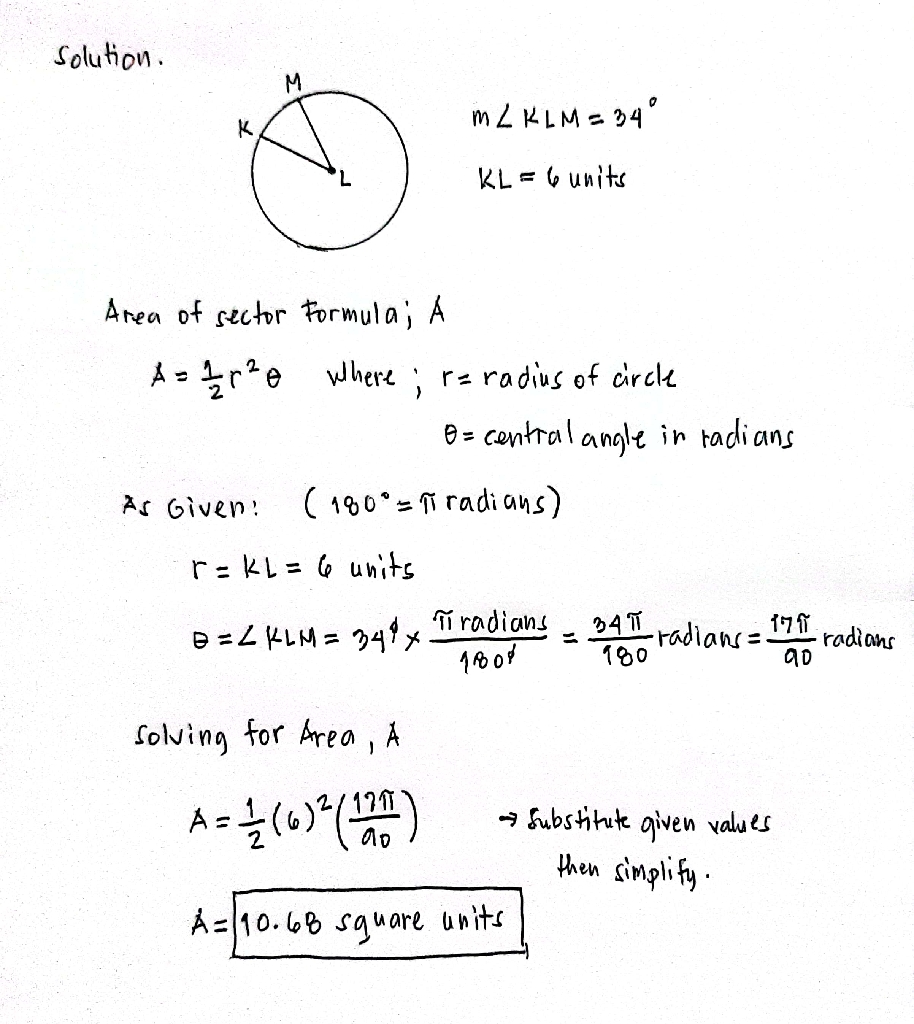 Solution.
M
K
L
m∠KLM = 34°
KL = 6 units
Area of sector Formula; A
A = 1/2 r²θ where ; r = radius of circle
θ = central angle in radians
As Given: (180° = π radians)
r = KL = 6 units
θ = ∠KLM = 34° × π radians/180° = 34π/180 radians = 17π/90 radians
Solving for Area, A
A = 1/2 (6)² (17π/90) → Substitute given values
then simplify.
A = 10.68 square units